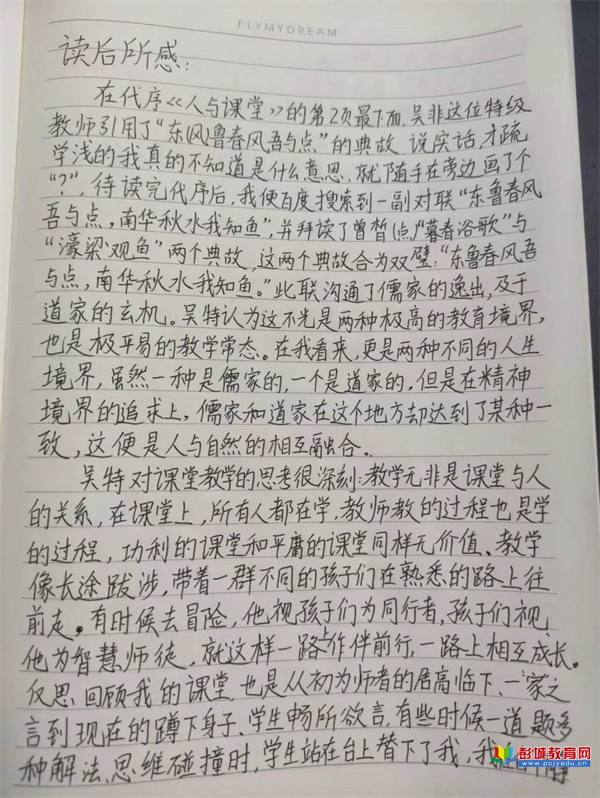 FLYMYDREAM
读后所感:
在代序《人与课堂》的第2页最下面,吴非这位特级
教师引用了“东鲁春风吾与点”的典故,说实话,才疏
学浅的我真的不知道是什么意思,就随手在旁边画了个
“?”,待读完代序后,我便百度搜索到一副对联“东鲁春风
吾与点,南华秋水我知鱼”,并拜读了曾皙(点)“暮春浴歌”与
“濠梁观鱼”两个典故,这两个典故合为双璧:“东鲁春风吾
与点,南华秋水我知鱼。”此联沟通了儒家的逸出,及于
道家的玄机。吴特认为这不光是两种极高的教育境界,
也是极平易的教学常态。在我看来,更是两种不同的人生
境界,虽然一种是儒家的,一个是道家的,但是在精神
境界的追求上,儒家和道家在这个地方却达到了某种一
致,这便是人与自然的相互融合.
吴特对课堂教学的思考很深刻:教学无非是课堂与人
的关系,在课堂上,所有人都在学,教师教的过程也是学
的过程,功利的课堂和平庸的课堂同样无价值、教学
像长途跋涉,带着一群不同的孩子们在熟悉的路上往
前走。有时候去冒险,他视孩子们为同行者,孩子们视
他为智慧师徒,就这样一路上作伴前行,一路上相互成长。
反思回顾我的课堂,也是从初为师者的居高临下、一家之
言到现在的蹲下身子、学生畅所欲言,有些时候一道题多
种解法、思维碰撞时,学生站在台上替下了我,我
彭城教育网
www.pcjyedu.cn